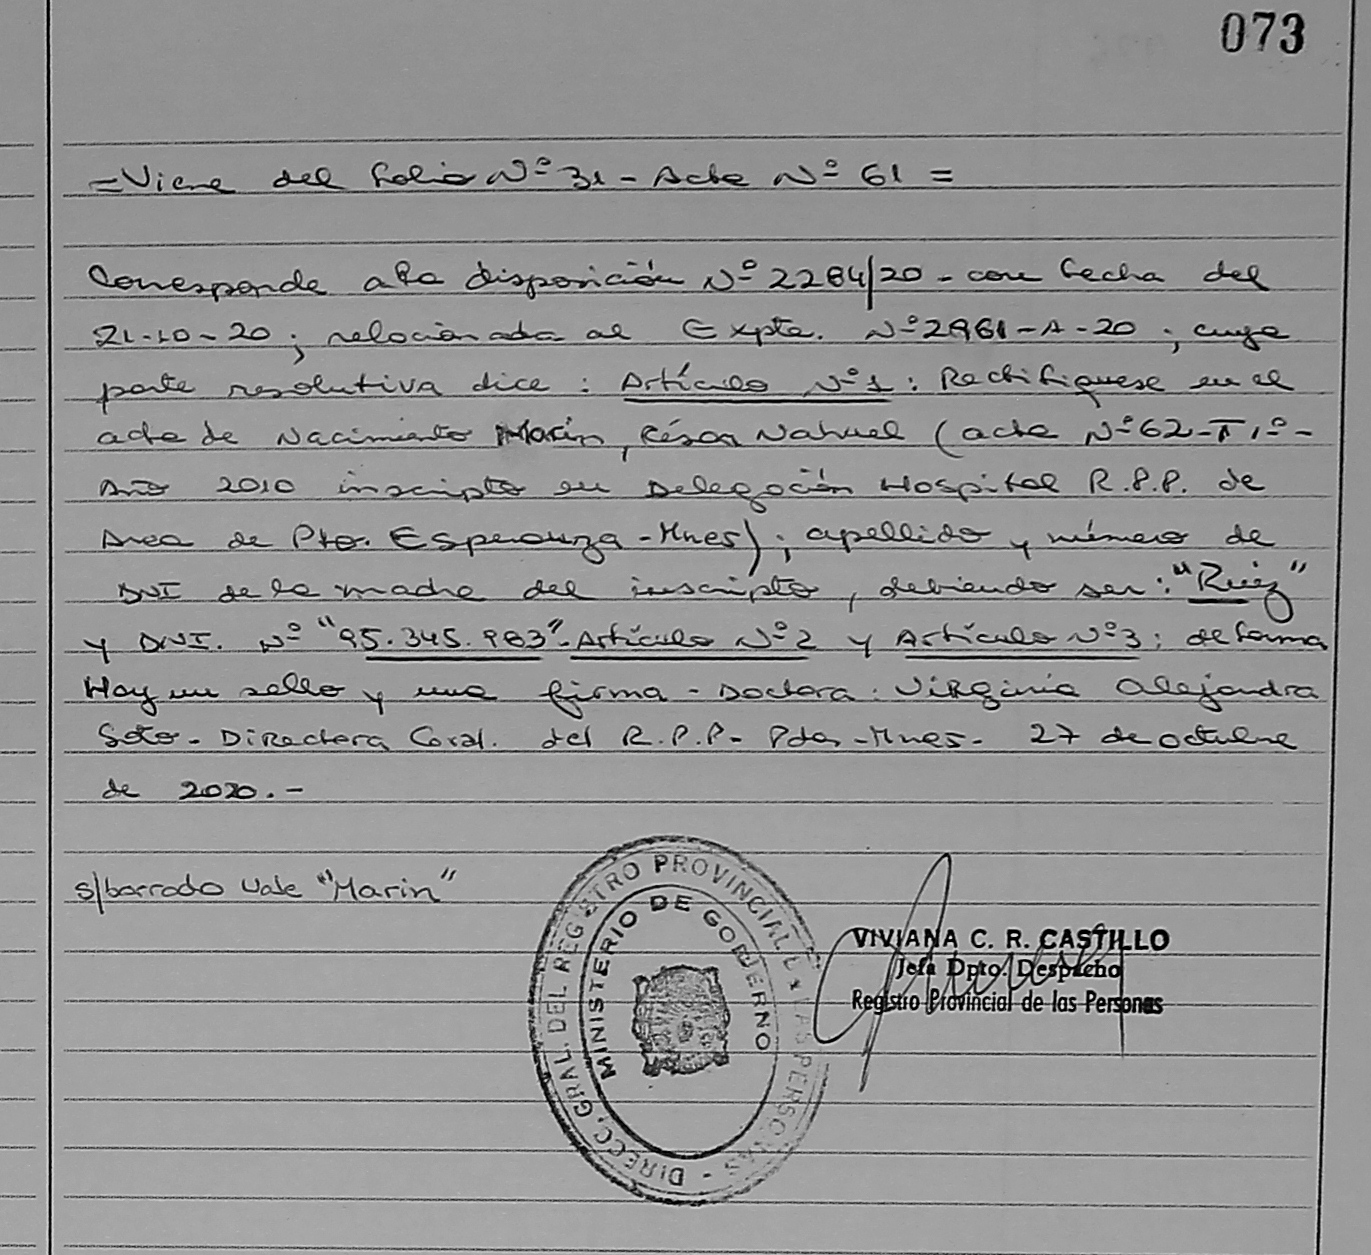 073
=Viene del folio Nº 31 - Acta Nº 61 =
Corresponde a la disposición Nº 2284/20 - con fecha del
21-10-20 ; relacionada al Expte. Nº 2961-A-20 ; cuya
parte resolutiva dice : Artículo Nº 1 : Rectifiquese en el
acta de Nacimiento Marin, César Nahuel (acta Nº 62-T 1º-
Año 2010 inscripto en Delegación Hospital R.P.P. de
Area de Pto. Esperanza - Mnes) ; apellido y número de
DNI de la madre del inscripto, debiendo ser : "Ruiz"
y DNI. Nº "95.345.983". Artículo Nº 2 y Artículo Nº 3 : de forma
Hay un sello y una firma - Doctora : Virginia Alejandra
Soto - Directora Gral. del R.P.P - Pdas - Mnes - 27 de octubre
de 2020.-
s/borrado vale "Marin"
DIRECC. GRAL. DEL REGISTRO PROVINCIAL LAS PERSONAS -
MINISTERIO DE GOBIERNO
VIVIANA C. R. CASTILLO
Jefa Dpto. Despacho
Registro Provincial de las Personas